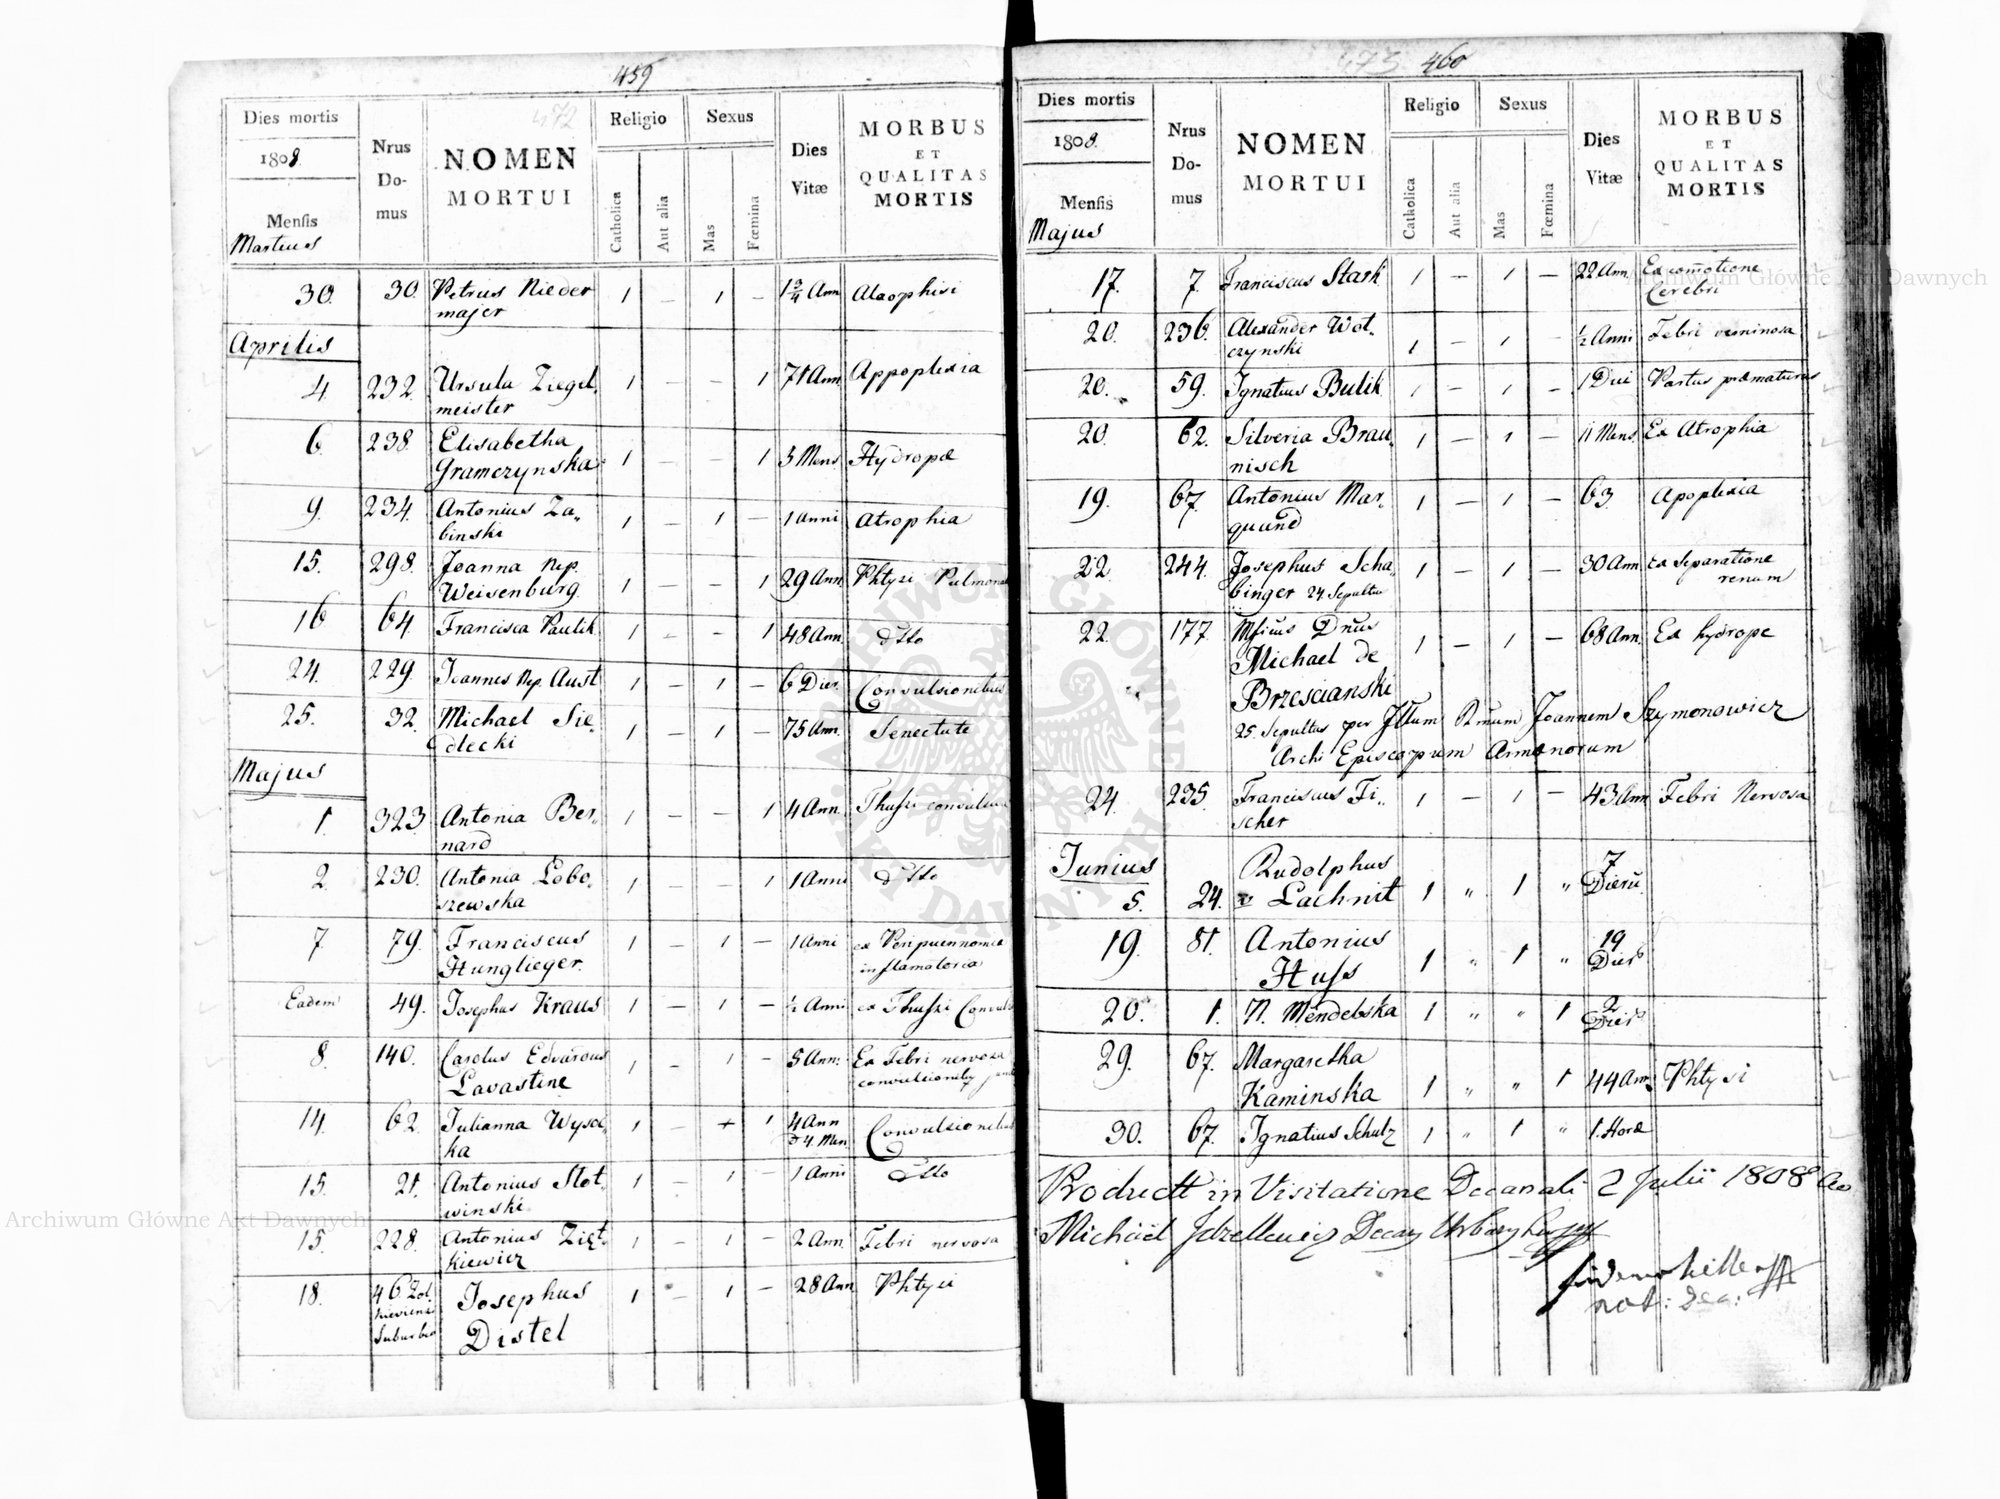 459
472
Dies mortis
1808.
Mensis
Martius
Nrus Do- mus
NOMEN MORTUI
Religio
Catholica
Aut alia
Sexus
Mas
Fœmina
Dies Vitæ
MORBUS ET QUALITAS MORTIS
30. 30. Petrus Nieder 1 – 1 – 1¾ Ann
majer
Aprilis
4 232 Ursula Ziegel 1 – – 1 71 Ann. Appoplexia
meister
6. 238. Elisabetha 1 – – 1 3 Mens. Hydropæ
Gramczynska
9. 234. Antonius Za- 1 – 1 – 1 Anni Atrophia
binski
15. 298. Joanna Nep. 1 – – 1 29 Ann Phtysi Pulmonal
Weisenburg.
16 64. Francisca Paulik 1 – – 1 48 Ann. dtto
24. 229. Joannes Np. Aust 1 – 1 – 6 Dier.
25. 32. Michael Sie- 1 – 1 – 75 Ann. Senectute
dlecki
Majus
1. 323. Antonia Ber- 1 – – 1 4 Ann.
nard
2. 230. Antonia Lobo- 1 – – 1 1 Anni dtto
szewska
7 79. Franciscus 1 – 1 – 1 Anni ex Peripuennomia
Hunglieger. inflamatoria
Eadem 49. Josephus Kraus 1 – 1 – ½ Anni
8. 140. Carolus Edvardus 1 – 1 – 5 Ann: Ex Febri nervosa
Lavastine
14. 62. Julianna Wysoc- 1 – + 1 4 Ann
ka d 4 Men
15. 21. Antonius Slot- 1 – 1 – 1 Anni dtto
winski.
15. 228. Antonius Zięt- 1 – 1 – 2 Ann. Febri nervosa
kiewicz
18. 46 Zol. Josephus 1 – 1 – 28 Ann Phtysi
kieviens
Suburbio Distel
473 460
Dies mortis
1808.
Mensis
Majus
Nrus Do- mus
NOMEN MORTUI
Religio
Catholica
Aut alia
Sexus
Mas
Fœmina
Dies Vitæ
MORBUS ET QUALITAS MORTIS
17. 7. Franciscus Stark 1 – 1 – 22 Ann. Ex com̄otione
Cerebri
20. 236. Alexander Wol- 1 – 1 – ½ Anni Febri verminosa
czynski
20. 59. Ignatius Bulik 1 – 1 – 1 Diei Partus præmaturus
20. 62. Silveria Brau- 1 – 1 – 11 Mens. Ex Atrophia
nisch
19. 67. Antonius Mar- 1 – 1 – 63 Apoplexia
quand
22 244. Josephus Scha- 1 – 1 – 30 Ann Ex Separatione
binger 24 Sepultus renum
22. 177. Mficus Dnus 1 – 1 – 68 Ann. Ex hydrope
Michael de
Brzescianski
25. Sepultus per Illum Rmum Joannem Szymonowicz
Archi Episcopum Armenorum
24. 235. Franciscus Fi- 1 – 1 – 43 Ann Febri Nervosa
scher
Junius
5. 24. Rudolphus 1 " 1 " 7 Dierū
Lachnit
19. 81. Antonius 1 " 1 " 19 Dies
Huss
20. 1. N. Mendelska 1 " " 1 2 Dies
29. 67. Margaretha 1 " " 1 44 Ann. Phtysi
Kaminska
30. 67. Ignatius Schulz 1 " 1 " 1. Horæ
Product in Visitatione Decanali 2 Julii 1808
Michael
not: Dec:
Archiwum Główne Akt Dawnych
Archiwum Główne Akt Dawnych
ARCHIWUM GŁÓWNE AKT DAWNYCH